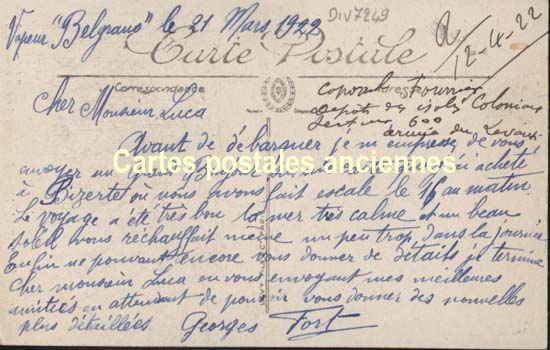 Vapeur "Belgrano" le 21 Mars 1922
DIV7249
R/ 12-4-22
Carte Postale
Correspondance
Cher Monsieur Luca
Caporal Fournier
Dépôt des isolés Coloniaux
Secteur 600
armée du Levant
Avant de débarquer je m'empresse de vous
envoyer un acheté
à Bizerte où nous avons fait escale le 16 au matin.
Le voyage a été très bon la mer très calme et un beau
soleil nous réchauffait même un peu trop dans la journée
Enfin ne pouvant encore vous donner de détails je termine
cher monsieur Luca en vous envoyant mes meilleures
amitiés en attendant de pouvoir vous donner des nouvelles
plus détaillées Georges Fort
Cartes postales anciennes